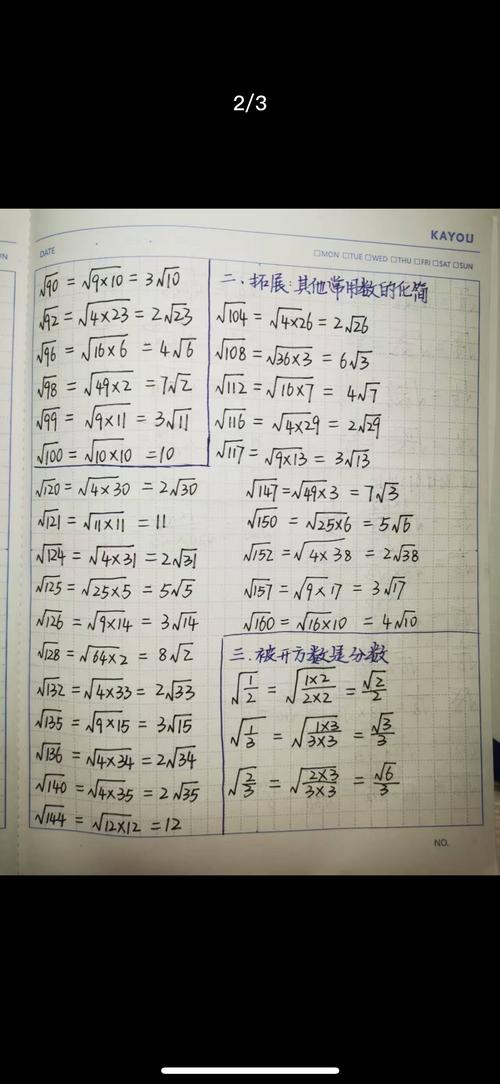 2/3
KAYOU
DATE
□MON □TUE □WED □THU □FRI □SAT □SUN
√90 = √9×10 = 3√10
√92 = √4×23 = 2√23
√96 = √16×6 = 4√6
√98 = √49×2 = 7√2
√99 = √9×11 = 3√11
√100 = √10×10 = 10
二、拓展:其他常用数的化简
√104 = √4×26 = 2√26
√108 = √36×3 = 6√3
√112 = √16×7 = 4√7
√116 = √4×29 = 2√29
√117 = √9×13 = 3√13
√120 = √4×30 = 2√30
√121 = √11×11 = 11
√124 = √4×31 = 2√31
√125 = √25×5 = 5√5
√126 = √9×14 = 3√14
√128 = √64×2 = 8√2
√132 = √4×33 = 2√33
√135 = √9×15 = 3√15
√136 = √4×34 = 2√34
√140 = √4×35 = 2√35
√144 = √12×12 = 12
√147 = √49×3 = 7√3
√150 = √25×6 = 5√6
√152 = √4×38 = 2√38
√157 = √9×17 = 3√17
√160 = √16×10 = 4√10
三、被开方数是分数
√1/2 = √1×2/2×2 = √2/2
√1/3 = √1×3/3×3 = √3/3
√2/3 = √2×3/3×3 = √6/3
NO.